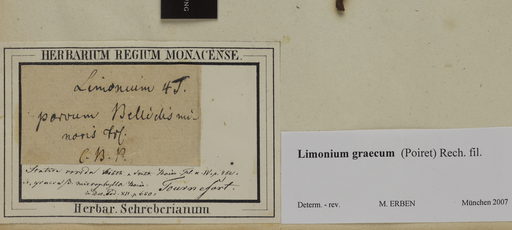 HERBARIUM REGIUM MONACENSE.
Limonium 4 T.
parvum Bellidis mi-
noris fol.
C. B. P.
Tournefort.
Herbar. Schreberianum
Limonium graecum (Poiret) Rech. fil.
Determ. - rev. M. ERBEN München 2007